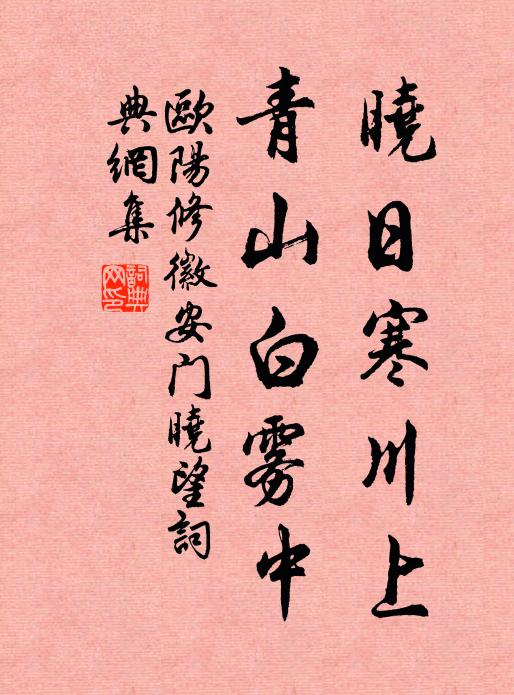 曉日寒川上
青山白雾中
歐陽修徽安门曉望詞
典網集
詞典
网印